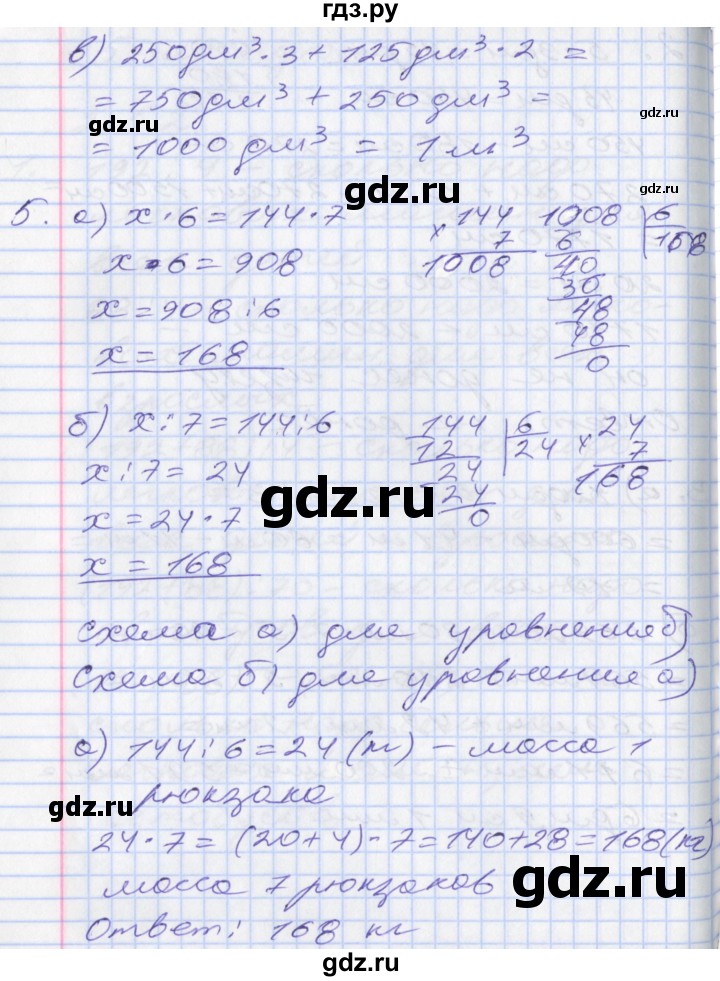 гдз.ру
в) 250дм³·3+125дм³·2 =
= 750дм³ + 250дм³ =
gdz.ru
gdz.ru
= 1000 дм³ = 1м³
gdz.ru
5. а) x·6=144·7
x·6=908
x=908:6
x = 168
× 144
7
1008
1008 6
6 168
40
30
48
48
0
gdz.ru
б) x:7=144:6
x:7= 24
x=24·7
x = 168
144 6
12 24
24
24
0
× 24
7
168
gdz.ru
gdz.ru
схема а) для уравнения б)
схема б) для уравнения а)
gdz.ru
а) 144:6=24(кг) – масса 1
рюкзака
gdz.ru
gdz.ru
24·7=(20+4)·7=140+28=168(кг)
масса 7 рюкзаков
gdz.ru
Ответ: 168 кг
gdz.ru